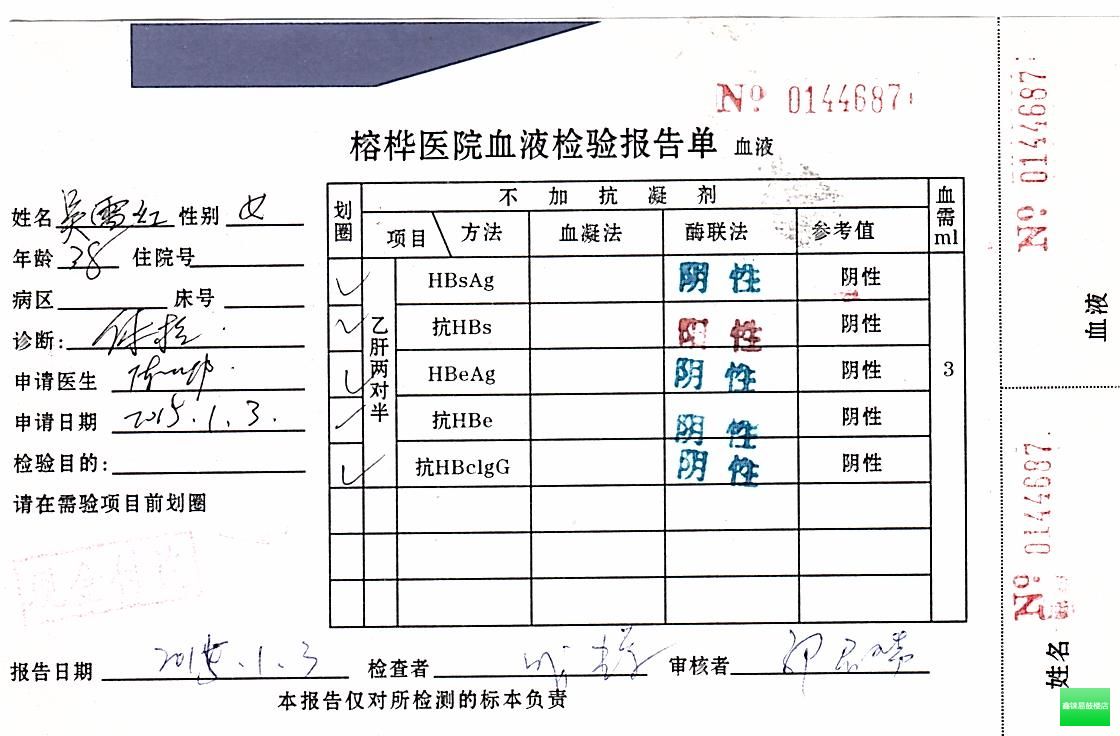 № 0144687
榕桦医院血液检验报告单 血液
姓名 吴雪红 性别 女
年龄 38 住院号
病区 床号
诊断: 体检
申请医生
申请日期 2015.1.3.
检验目的:
请在需验项目前划圈
划圈 不加抗凝剂 血需ml
项目 方法 血凝法 酶联法 参考值
乙肝两对半
HBsAg 阴性 阴性
抗HBs 阴性 阴性
HBeAg 阴性 阴性
3
抗HBe 阴性 阴性
抗HBclgG 阴性 阴性
现金付讫
报告日期 2015.1.3 检查者 审核者
本报告仅对所检测的标本负责
№ 0144687
血液
№ 0144687
姓名
鑫锦易鼓楼店